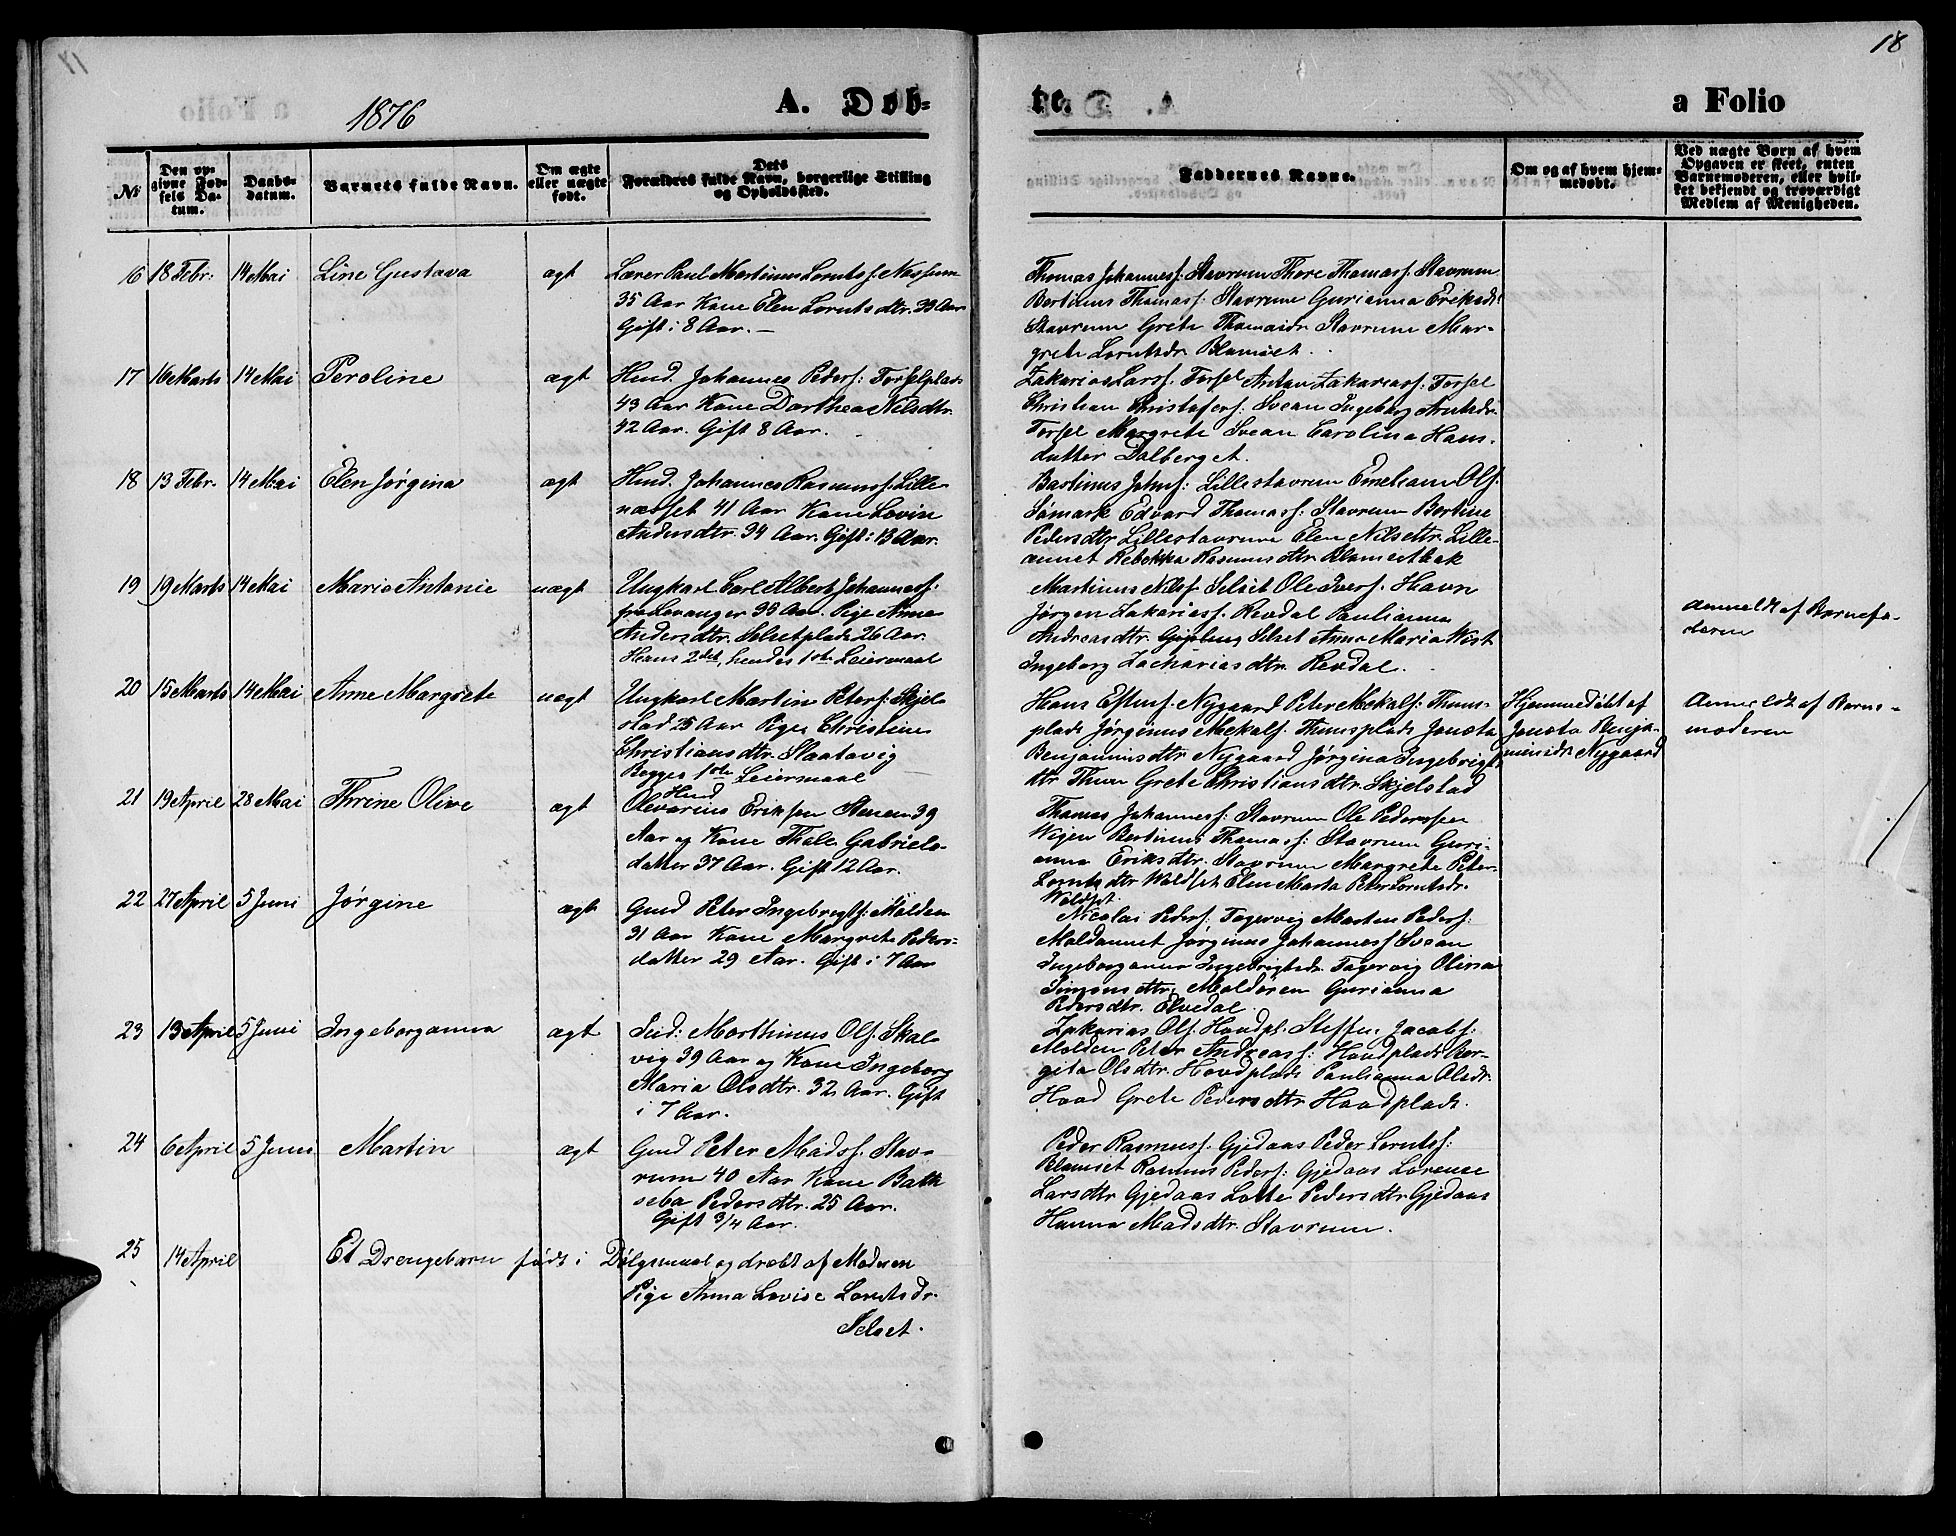 18
1876
A. Døb-
te.
a Folio
№
Den op-
givne Fød-
sels Da-
tum.
Daabs-
datum.
Barnets fulde Navn.
Om ægte
eller uægte
født.
Dets
Forældres fulde Navn, borgerlige Stilling
og Opholdssted.
Faddernes Navne.
Om og af hvem hjem-
medøbt.
Ved uægte Børn af hvem
Opgaven er skeet, enten
Barnemoderen, eller hvil-
ket bekjendt og troværdigt
Medlem af Menigheden.
16 18 Febr. 14 Mai Line Gustava ægt Lærer Paul Martinus Lorntsf. Nessum
35 Aar Kone Elen Lorntsdtr. 33 Aar
Gift i 8 Aar. —
Thomas Johannesf. Stavrum Thore Thomasf. Stavrum
Bertinus Thomasf. Stavrum Gurianna Eriksdt
Stavrum Grete Thomasdr Stavrum Mar-
grete Lorntsdr
17 16 Marts 14 Mai Peroline ægt Husd. Johannes Pedersf: Forselplads
43 Aar Kone Dorthea Nilsdtr.
42 Aar. Gift 8 Aar.
Zakarias Larsf. Forsel Anton Zakariasf: Forsel
Christian Christofersf: Svean Ingeborg Arntsdr.
Forsel Margrete Svean Carolina Hans-
datter Dalberget.
18 13 Febr. 14 Mai Elen Jørgina ægt Husd. Johannes Rasmusf. Lille-
nesset 41 Aar Kone Lovin
Andersdtr. 34 Aar. Gift i 13 Aar.
Bastinus Johnf: Lillestavrum Olf.
Sømark Edvard Thomasf. Stavrum Bertine
Pedersdtr Lillestavrum Elen Nilsdtr. Lille-
Rebekka Rasmusdtr.
19 19 Marts 14 Mai Maria Antonie uægt Ungkarl Carl Albert Johannesf:
fra Levanger 33 Aar. Pige Anne
Andersdtr. Selsetplads 26 Aar.
Hans 2det, hendes 1ste Leiermaal
Martinus Nilsf Selset Ole Iversf. Havn
Jørgen Zakariasf. Revdal Paulianna
Andreasdtr. Selset Anna Maria West
Ingeborg Zachariasdtr. Revdal.
Anmeldt af Barnefa-
deren
20 15 Marts 14 Mai Anne Margrete uægt Ungkarl Martin Petersf: Skjel-
stad 25 Aar Pige Christine
Christiansdtr. Slaatavig
Begges 1ste Leiermaal
Hans Nygaard Peter Mekalf: Thuns-
plads Jørginus Mekalf. Thunsplads Joneta
Benjaminsdtr Nygaard Jørgina Ingebrigt-
dtr Thun Grete Christiansdtr. Skjelstad
Hjemmedøbt af
Joneta Benja-
minsdr Nygaard
Anmeldt af Barne-
moderen
21 19 April 28 Mai Thrine Olive ægt Husd
Olevarius Eriksen Stenen 39
Aar og Kone Thale Gabriels-
datter 37 Aar. Gift 12 Aar.
Thomas Johannesf: Stavrum Ole Pedersen
Vigen Bertinus Thomasf: Stavrum Guri-
anna Eriksdtr. Stavrum Margrete Peter-
Lorntsdtr Waldset Elen Marta Peter Lorntsdr.
Waldset.
22 27 April 5 Juni Jørgine ægt Gmd Peter Ingebrigtsf: Molden
31 Aar Kone Margrete Peders-
datter 29 Aar. Gift i 7 Aar
Nicolai Pedersf: Fagervig Morten Pedersf:
Jørginus Johannesf Svean
Ingeborganna Ingebrigtsdr. Fagervig Olina
Simonsdtr. Moldøren Gurianna
Pedersdtr. Elvedal.
23 13 April 5 Juni Ingeborganna ægt Ind: Morthinus Olf. Skal-
vig 39 Aar og Kone Ingeborg
Maria Olsdtr. 32 Aar. Gift
i 7 Aar.
Zakarias Olf. Hovdpl. Steffen Jacobf:
Molden Peter Andreasf: Hovdplads Ber-
gita Olsdtr. Hovdplads Paulianna Olsdr.
Hovd Grete Pedersdtr Hovdplads.
24 6 April 5 Juni Martin ægt Gmd Peter Madsf. Stav-
rum 40 Aar Kone Bath-
seba Pedersdtr. 25 Aar.
Gift 3/4 Aar.
Peder Rasmusf. Gjedaas Peder Lorntsf:
Rasmus Pedersf: Gjedaas Lorense
Larsdtr Gjedaas Lotte Pedersdtr Gjedaas
Hanna Madsdtr. Stavrum.
25 14 April Et Drengebarn født i Dølgsmaal og dræbt af Moderen
Pige Anna Lovise Lorntsdr.
Selset.